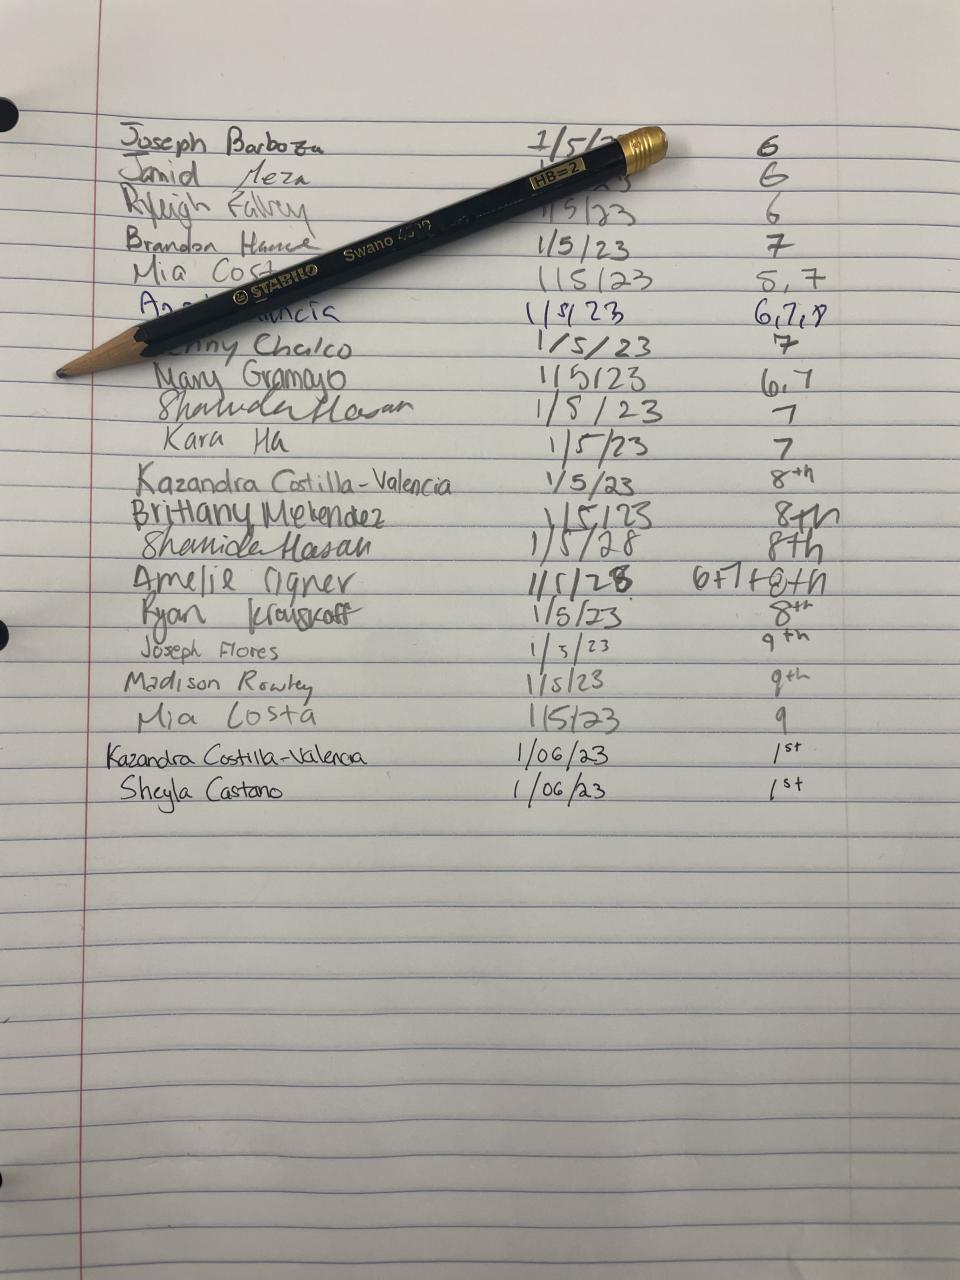 Joseph Barboza 1/5/ 6
Jamid Meza 6
Ryleigh Falvey 1/5/23 6
Brandon 1/5/23 7
Mia Cost 1/5/23 5, 7
1/5/23 6,7,8
Chalco 1/5/23 7
Mary Gramayo 1/5/23 6,7
Shamida Hasan 1/5/23 7
Kara Ha 1/5/23 7
Kazandra Costilla-Valencia 1/5/23 8th
Brittany Melendez 1/5/23 8th
Shamida Hasan 1/5/28 8th
Amelie Cigner 1/5/23 6+7+8th
Ryan 1/5/23 8th
Joseph Flores 1/5/23 9th
Madison Rowley 1/5/23 9th
Mia Costa 1/5/23 9
Kazandra Costilla-Valencia 1/06/23 1st
Sheyla Castano 1/06/23 1st
STABILO Swano HB=2